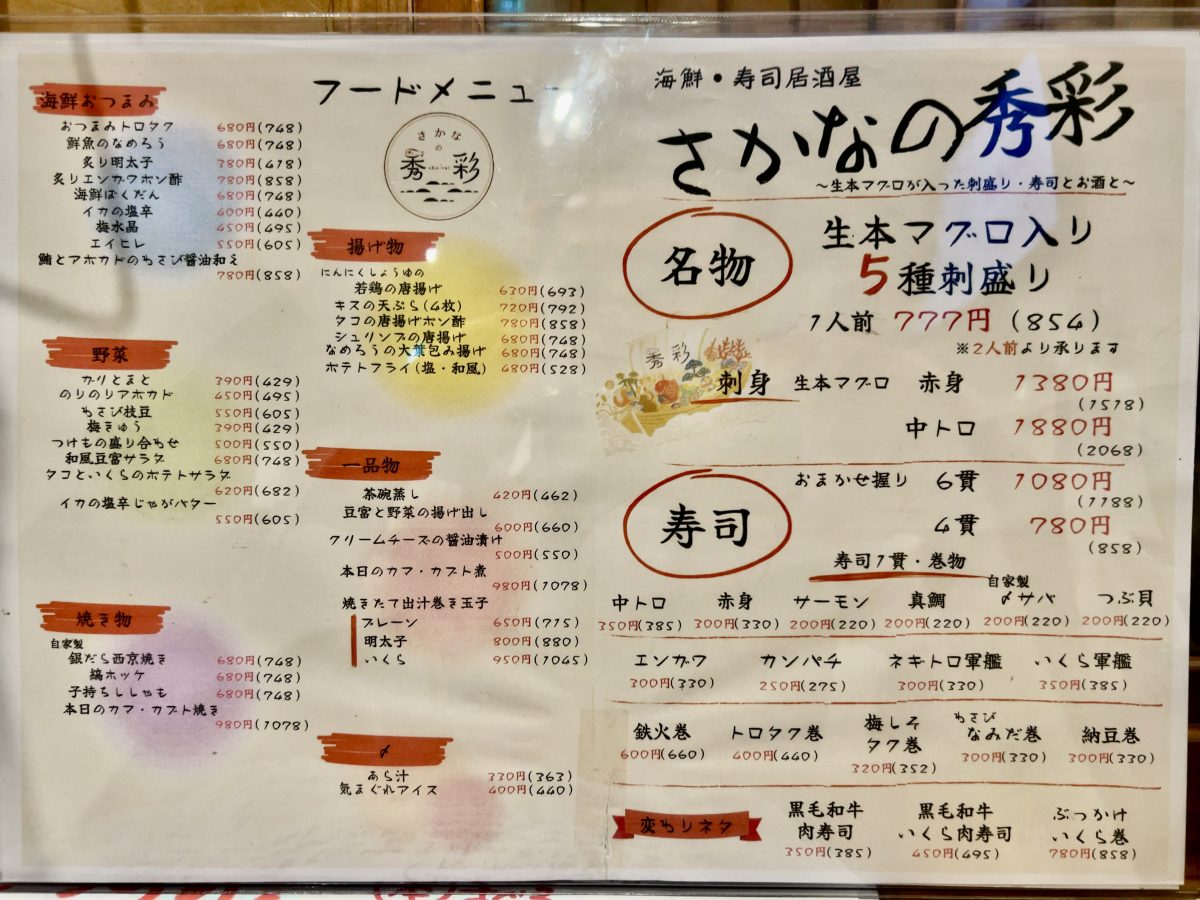 フードメニュー
さかな
の
秀彩
海鮮おつまみ
おつまみトロタク 680円(748)
鮮魚のなめろう 680円(748)
炙り明太子 380円(418)
炙りエンガワポン酢 780円(858)
海鮮ばくだん 680円(748)
イカの塩辛 400円(440)
梅水晶 450円(495)
エイヒレ 550円(605)
鮪とアボカドのわさび醤油和え
780円(858)
野菜
ガリとまと 390円(429)
のりのりアボカド 450円(495)
わさび枝豆 550円(605)
梅きゅう 390円(429)
つけもの盛り合わせ 500円(550)
和風豆富サラダ 680円(748)
タコといくらのポテトサラダ
620円(682)
イカの塩辛じゃがバター
550円(605)
焼き物
自家製
銀だら西京焼き 680円(748)
縞ホッケ 680円(748)
子持ちししゃも 680円(748)
本日のカマ・カブト焼き
980円(1078)
揚げ物
にんにくしょうゆの
若鶏の唐揚げ 630円(693)
キスの天ぷら(4枚) 720円(792)
タコの唐揚げポン酢 780円(858)
シュリンプの唐揚げ 680円(748)
なめろうの大葉包み揚げ 680円(748)
ポテトフライ(塩・和風) 480円(528)
一品物
茶碗蒸し 420円(462)
豆富と野菜の揚げ出し
600円(660)
クリームチーズの醤油漬け
500円(550)
本日のカマ・カブト煮
980円(1078)
焼きたて出汁巻き玉子
プレーン 650円(715)
明太子 800円(880)
いくら 950円(1045)
〆
あら汁 330円(363)
気まぐれアイス 400円(440)
海鮮・寿司居酒屋
さかなの秀彩
～生本マグロが入った刺盛り・寿司とお酒と～
名物
生本マグロ入り
5種刺盛り
1人前 777円(854)
※2人前より承ります
秀彩
刺身 生本マグロ 赤身 1380円
(1518)
中トロ 1880円
(2068)
寿司
おまかせ握り 6貫 1080円
(1188)
4貫 780円
(858)
寿司1貫・巻物
中トロ 赤身 サーモン 真鯛 自家製〆サバ つぶ貝
350円(385) 300円(330) 200円(220) 200円(220) 200円(220) 200円(220)
エンガワ カンパチ ネギトロ軍艦 いくら軍艦
300円(330) 250円(275) 300円(330) 350円(385)
鉄火巻 トロタク巻 梅しそタク巻 わさびなみだ巻 納豆巻
600円(660) 400円(440) 320円(352) 300円(330) 300円(330)
変わりネタ
黒毛和牛 黒毛和牛 ぶっかけ
肉寿司 いくら肉寿司 いくら巻
350円(385) 450円(495) 780円(858)